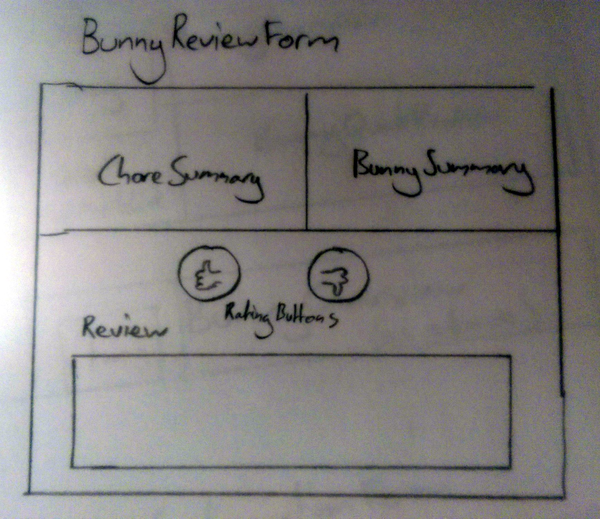 Bunny Review Form
Chore Summary
Bunny Summary
Rating Buttons
Review